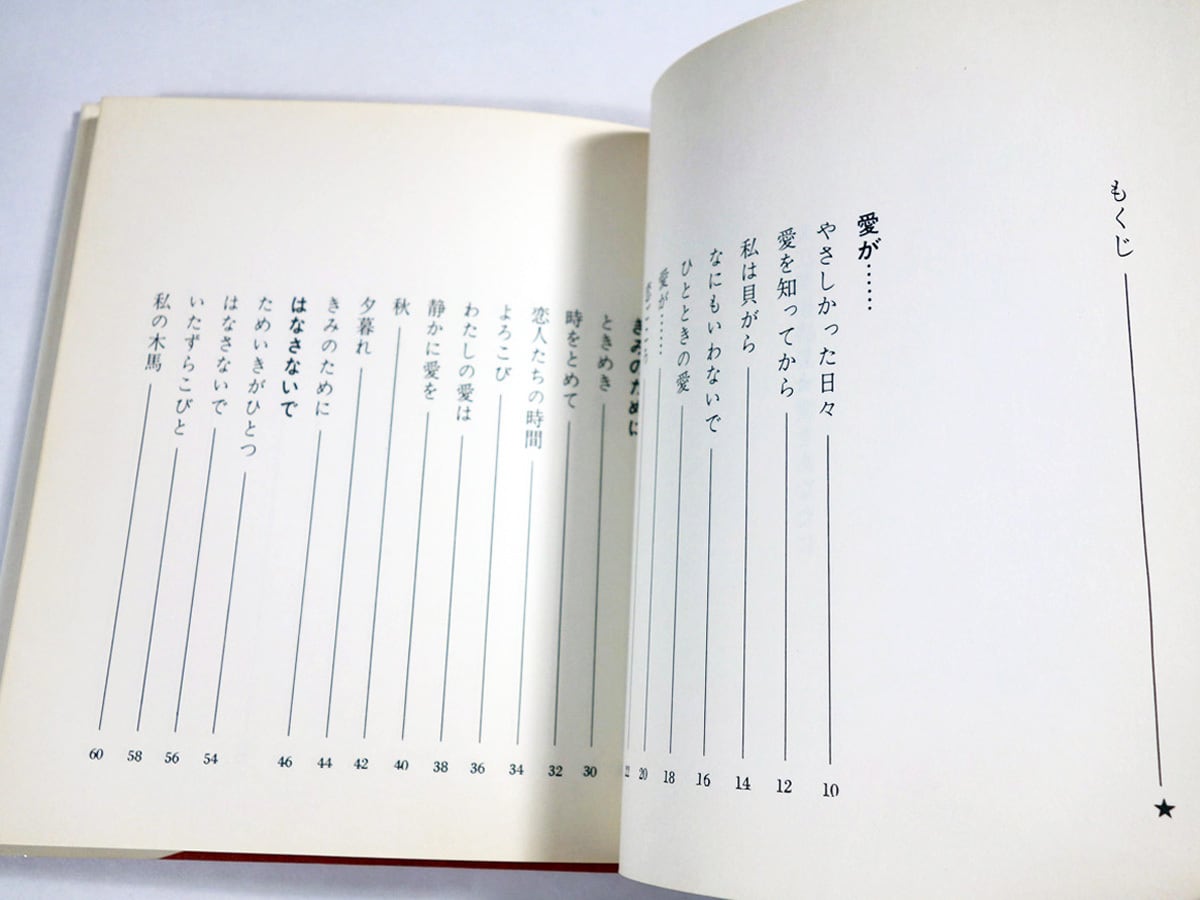 もくじ ★
愛が……
やさしかった日々 10
愛を知ってから 12
私は貝がら 14
なにもいわないで 16
ひとときの愛 18
愛が…… 20
22
きみのために
ときめき 30
時をとめて 32
恋人たちの時間 34
よろこび 36
わたしの愛は 38
静かに愛を 40
秋 42
夕暮れ 44
きみのために 46
はなさないで
ためいきがひとつ 54
はなさないで 56
いたずらこびと 58
私の木馬 60